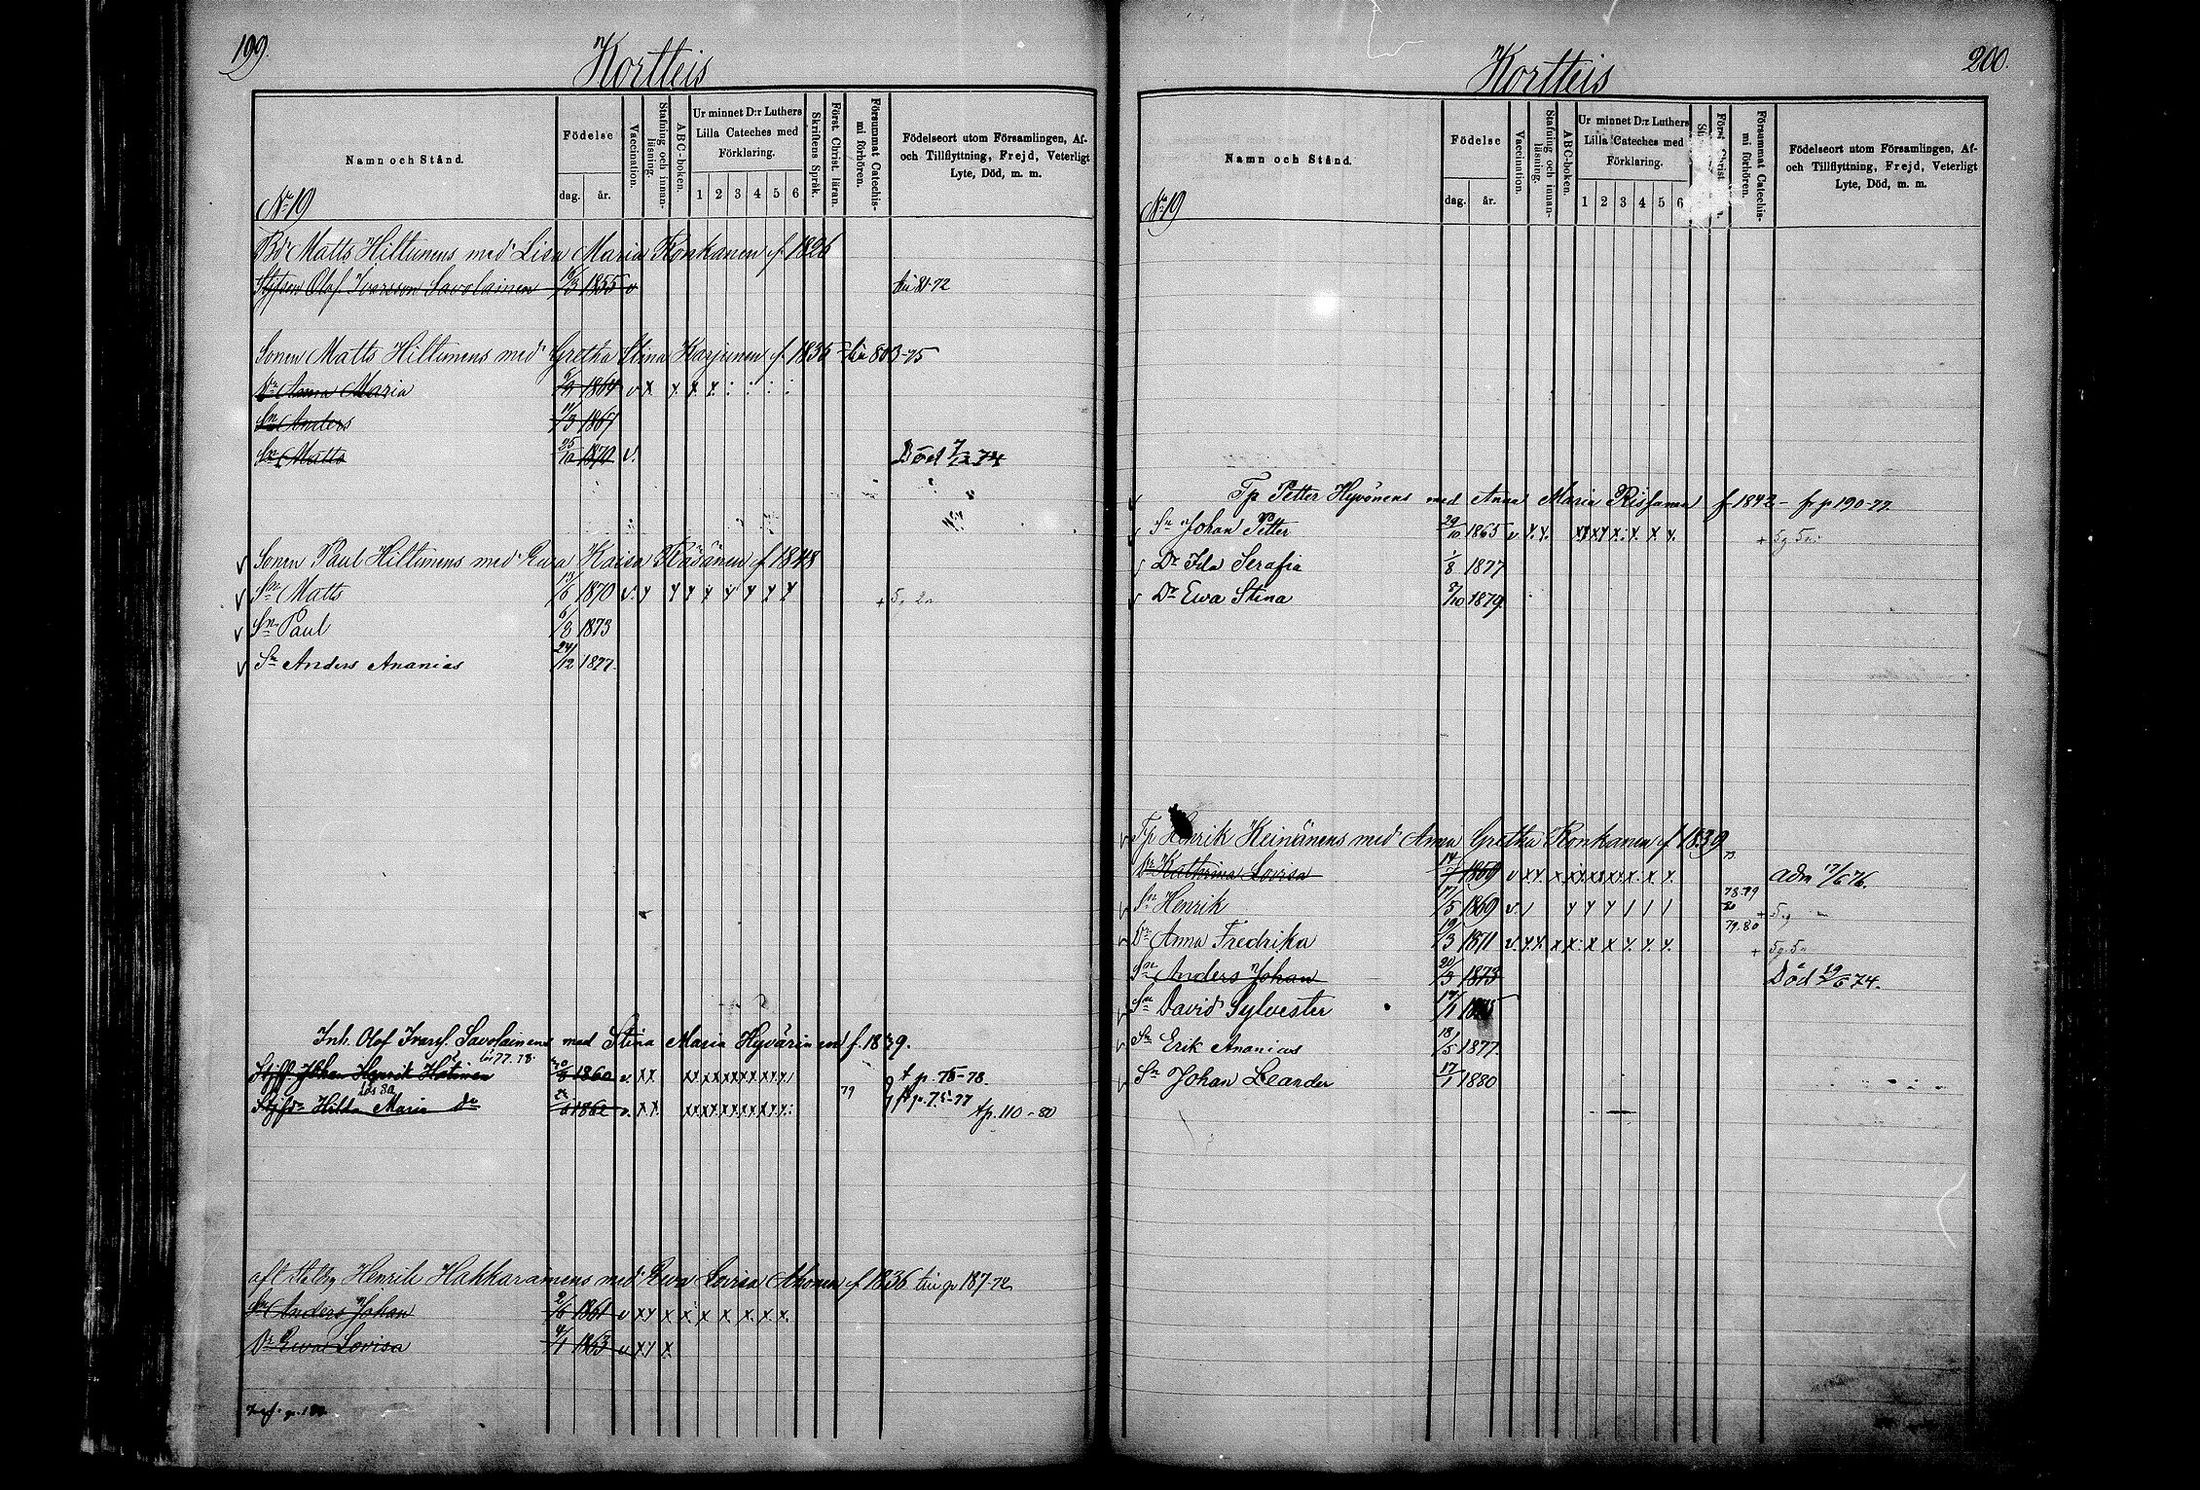 199.
Kortteis
Namn och Stånd.
Födelse
dag. år.
Vaccination.
Stafning och innan-
läsning.
ABC-boken.
Ur minnet D:r Luthers
Lilla Cateches med
Förklaring.
1 2 3 4 5 6
Skriftens Språk.
Först. Christ. läran.
Försummat Catechis-
mi förhören.
Födelseort utom Församlingen, Af-
och Tillflyttning, Frejd, Veterligt
Lyte, Död, m. m.
No 19
Bd Matts Hiltunens med Lisa Maria Ronkanen f. 1826
Styfson Olof Ivarsson Savolainen 16/3 1855 v
Sonen Matts Hiltunens med Gretha Stina Karjunen f. 1836 803-75
Dr Anna Maria 1864 v x x x x : : : :
Sn Anders 11/3 1867
Sn Matts 25/10 1870 v. Död 74
Sonen Paul Hiltunens med Ewa Kaisa Räsänen f 1848
Sn Matts 1870 v. x x x x x x x x
Sn Paul 6/8 1873
Sn Anders Ananias 24/12 1877.
Inh. Olof Ivarss. Savolainens med Stina Maria Hyvärinen f. 1839.
77. 78.
Johan Henrik 1860 v. x x x x x x x x x x t p. 75-78.
80
Hilda Maria Do 1862 v. x x x x x x x x x x 79 tp. 110-80
Henrik Hakkarainens med Ewa Lovisa Ahonen f. 1836 187-72
Sn Anders Johan 2/6 1861 v x x x x x x x x x
Dr Ewa Lovisa 4/1 1863 v x x x
200.
Kortteis
Namn och Stånd.
Födelse
dag. år.
Vaccination.
Stafning och innan-
läsning.
ABC-boken.
Ur minnet D:r Luthers
Lilla Cateches med
Förklaring.
1 2 3 4 5 6
Först. Christ.
Försummat Catechis-
mi förhören.
Födelseort utom Församlingen, Af-
och Tillflyttning, Frejd, Veterligt
Lyte, Död, m. m.
No 19
Tp Petter Hyvönens med Anna Maria f 1842 - fr p 190-77
Sn Johan Petter 29/10 1865 v x. x. x x x x. x. x x.
Dr Ida Serafia 1/8 1877
Dr Ewa Stina /10 1879
Tp Henrik Heinänens med Anna Gretha Ronkanen f. 1839
Dr Kathrina Lovisa 14/ 1859 v x x. x x x x x x x. x x. adm 17/6 76.
Sn Henrik 17/5 1869 v. 78.79
Dr Anna Fredrika 19/3 1871 v. x. x. x x x x x. x. x. 79.80
Sn Anders Johan 20/3 1873 Död 19/6 74.
Sn David Sylvester
Sn Erik Ananias 18/5 1877.
Sn Johan Leander 17/1 1880